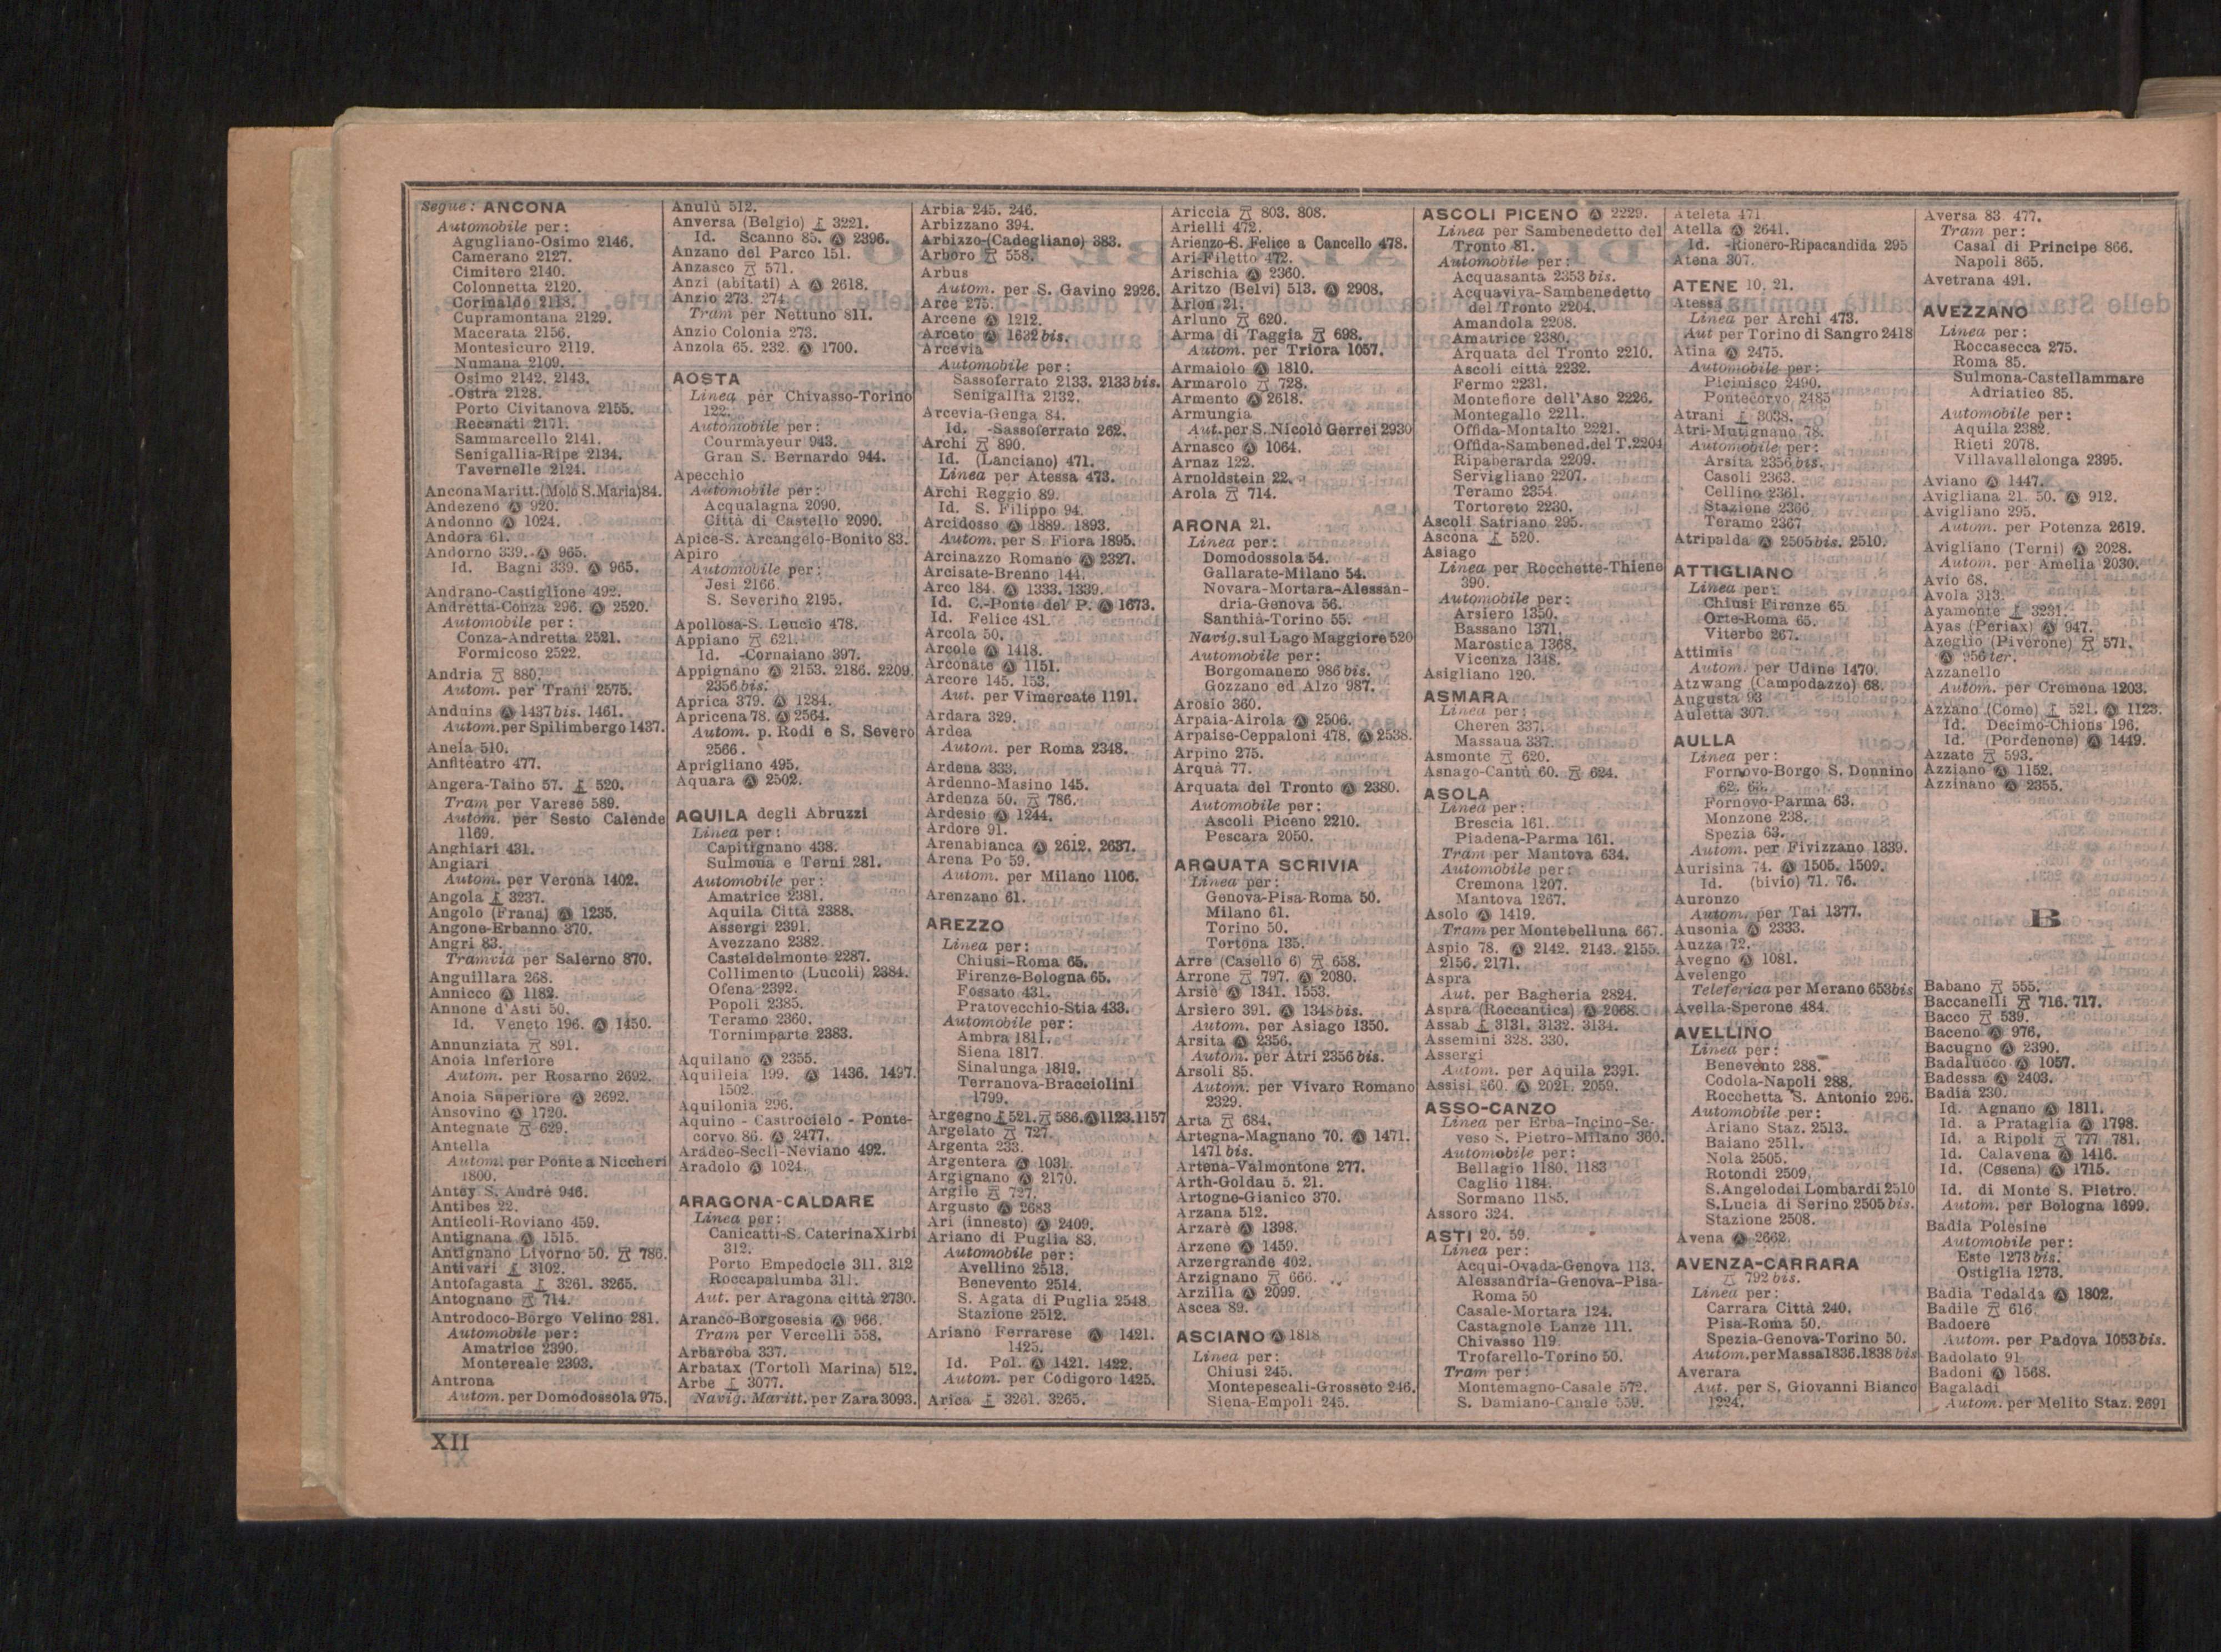 Segue: ANCONA
Automobile per:
Agugliano-Osimo 2146.
Camerano 2127.
Cimitero 2140.
Colonnetta 2120.
Corinaldo 2118.
Cupramontana 2129.
Macerata 2156.
Montesicuro 2119.
Numana 2109.
Osimo 2142. 2143.
Ostra 2128.
Porto Civitanova 2155.
Recanati 2171.
Sammarcello 2141.
Senigallia-Ripe 2134.
Tavernelle 2124.
Ancona Maritt. (Molo S. Maria) 84.
Andezeno Ⓐ 920.
Andonno Ⓐ 1024.
Andora 61.
Andorno 339. Ⓐ 965.
Id. Bagni 339. Ⓐ 965.
Andrano-Castiglione 492.
Andretta-Conza 296. Ⓐ 2520.
Automobile per:
Conza-Andretta 2521.
Formicoso 2522.
Andria 880.
Autom. per Trani 2575.
Anduins Ⓐ 1437 bis. 1461.
Autom. per Spilimbergo 1437.
Anela 510.
Anfiteatro 477.
Angera-Taino 57. 520.
Tram per Varese 589.
Autom. per Sesto Calende
1169.
Anghiari 431.
Angiari
Autom. per Verona 1402.
Angola 3237.
Angolo (Frana) Ⓐ 1235.
Angone-Erbanno 370.
Angri 83.
Tramvia per Salerno 870.
Anguillara 268.
Annicco Ⓐ 1182.
Annone d'Asti 50.
Id. Veneto 196. Ⓐ 1450.
Annunziata 891.
Anoia Inferiore
Autom. per Rosarno 2692.
Anoia Superiore Ⓐ 2692.
Ansovino Ⓐ 1720.
Antegnate 629.
Antella
Autom. per Ponte a Niccheri
1800.
Antey S. Andrè 946.
Antibes 22.
Anticoli-Roviano 459.
Antignana Ⓐ 1515.
Antignano Livorno 50. 786.
Antivari 3102.
Antofagasta 3261. 3265.
Antognano 714.
Antrodoco-Borgo Velino 281.
Automobile per:
Amatrice 2390.
Montereale 2393.
Antrona
Autom. per Domodossola 975.
Anulù 512.
Anversa (Belgio) 3221.
Id. Scanno 85. Ⓐ 2396.
Anzano del Parco 151.
Anzasco 571.
Anzi (abitati) A Ⓐ 2618.
Anzio 273. 274.
Tram per Nettuno 811.
Anzio Colonia 273.
Anzola 65. 232. Ⓐ 1700.
AOSTA
Linea per Chivasso-Torino
122.
Automobile per:
Courmayeur 943.
Gran S. Bernardo 944.
Apecchio
Automobile per:
Acqualagna 2090.
Città di Castello 2090.
Apice-S. Arcangelo-Bonito 83.
Apiro
Automobile per:
Jesi 2166.
S. Severino 2195.
Apollosa-S. Leucio 478.
Appiano 621.
Id. -Cornaiano 397.
Appignano Ⓐ 2153. 2186. 2209.
2356 bis.
Aprica 379. Ⓐ 1284.
Apricena 78. Ⓐ 2564.
Autom. p. Rodi e S. Severo
2566.
Aprigliano 495.
Aquara Ⓐ 2502.
AQUILA degli Abruzzi
Linea per:
Capitignano 438.
Sulmona e Terni 281.
Automobile per:
Amatrice 2381.
Aquila Città 2388.
Assergi 2391.
Avezzano 2382.
Casteldelmonte 2287.
Collimento (Lucoli) 2384.
Ofena 2392.
Popoli 2385.
Teramo 2360.
Tornimparte 2383.
Aquilano Ⓐ 2355.
Aquileia 199. Ⓐ 1436. 1497.
1502.
Aquilonia 296.
Aquino - Castrocielo - Ponte-
corvo 86. Ⓐ 2477.
Aradeo-Seclì-Neviano 492.
Aradolo Ⓐ 1024.
ARAGONA-CALDARE
Linea per:
Canicattì-S. Caterina Xirbi
312.
Porto Empedocle 311. 312
Roccapalumba 311.
Aut. per Aragona città 2730.
Aranco-Borgosesia Ⓐ 966.
Tram per Vercelli 558.
Arbaroba 337.
Arbatax (Tortolì Marina) 512.
Arbe 3077.
Navig. Maritt. per Zara 3093.
Arbia 245. 246.
Arbizzano 394.
Arbizzo-(Cadegliano) 383.
Arboro 558.
Arbus
Autom. per S. Gavino 2926.
Arce 275.
Arcene Ⓐ 1212.
Arceto Ⓐ 1632 bis.
Arcevia
Automobile per:
Sassoferrato 2133. 2133 bis.
Senigallia 2132.
Arcevia-Genga 84.
Id. -Sassoferrato 262.
Archi 890.
Id. (Lanciano) 471.
Linea per Atessa 473.
Archi Reggio 89.
Id. S. Filippo 94.
Arcidosso Ⓐ 1889. 1893.
Autom. per S. Fiora 1895.
Arcinazzo Romano Ⓐ 2327.
Arcisate-Brenno 144.
Arco 184. Ⓐ 1333. 1339.
Id. C.-Ponte del P. Ⓐ 1673.
Id. Felice 481.
Arcola 50.
Arcole Ⓐ 1418.
Arconate Ⓐ 1151.
Arcore 145. 153.
Aut. per Vimercate 1191.
Ardara 329.
Ardea
Autom. per Roma 2348.
Ardena 333.
Ardenno-Masino 145.
Ardenza 50. 786.
Ardesio Ⓐ 1244.
Ardore 91.
Arenabianca Ⓐ 2612. 2637.
Arena Po 59.
Autom. per Milano 1106.
Arenzano 61.
AREZZO
Linea per:
Chiusi-Roma 65.
Firenze-Bologna 65.
Fossato 431.
Pratovecchio-Stia 433.
Automobile per:
Ambra 1811.
Siena 1817.
Sinalunga 1819.
Terranova-Bracciolini
1799.
Argegno 521. 586. Ⓐ 1123. 1157
Argelato 727.
Argenta 233.
Argentera Ⓐ 1031.
Argignano Ⓐ 2170.
Argile 727.
Argusto Ⓐ 2683
Ari (innesto) Ⓐ 2409.
Ariano di Puglia 83.
Automobile per:
Avellino 2513.
Benevento 2514.
S. Agata di Puglia 2548.
Stazione 2512.
Ariano Ferrarese Ⓐ 1421.
1425.
Id. Pol. Ⓐ 1421. 1422.
Autom. per Codigoro 1425.
Arica 3261. 3265.
Ariccia 803. 808.
Arielli 472.
Arienzo-S. Felice a Cancello 478.
Ari-Filetto 472.
Arischia Ⓐ 2360.
Aritzo (Belvì) 513. Ⓐ 2908.
Arlon 21.
Arluno 620.
Arma di Taggia 698.
Autom. per Triora 1057.
Armaiolo Ⓐ 1810.
Armarolo 728.
Armento Ⓐ 2618.
Armungia
Aut. per S. Nicolò Gerrei 2930
Arnasco Ⓐ 1064.
Arnaz 122.
Arnoldstein 22.
Arola 714.
ARONA 21.
Linea per:
Domodossola 54.
Gallarate-Milano 54.
Novara-Mortara-Alessan-
dria-Genova 56.
Santhià-Torino 55.
Navig. sul Lago Maggiore 520
Automobile per:
Borgomanero 986 bis.
Gozzano ed Alzo 987.
Arosio 360.
Arpaia-Airola Ⓐ 2506.
Arpaise-Ceppaloni 478. Ⓐ 2538.
Arpino 275.
Arquà 77.
Arquata del Tronto Ⓐ 2380.
Automobile per:
Ascoli Piceno 2210.
Pescara 2050.
ARQUATA SCRIVIA
Linea per:
Genova-Pisa-Roma 50.
Milano 61.
Torino 50.
Tortona 135.
Arre (Casello 6) 658.
Arrone 797. Ⓐ 2080.
Arsiè Ⓐ 1341. 1553.
Arsiero 391. Ⓐ 1348 bis.
Autom. per Asiago 1350.
Arsita Ⓐ 2356.
Autom. per Atri 2356 bis.
Arsoli 85.
Autom. per Vivaro Romano
2329.
Arta 684.
Artegna-Magnano 70. Ⓐ 1471.
1471 bis.
Artena-Valmontone 277.
Arth-Goldau 5. 21.
Artogne-Gianico 370.
Arzana 512.
Arzarè Ⓐ 1398.
Arzene Ⓐ 1459.
Arzergrande 402.
Arzignano 666.
Arzilla Ⓐ 2099.
Ascea 89.
ASCIANO Ⓐ 1818
Linea per:
Chiusi 245.
Montepescali-Grosseto 246.
Siena-Empoli 245.
ASCOLI PICENO Ⓐ 2229.
Linea per Sambenedetto del
Tronto 81.
Automobile per:
Acquasanta 2353 bis.
Acquaviva-Sambenedetto
del Tronto 2204.
Amandola 2208.
Amatrice 2380.
Arquata del Tronto 2210.
Ascoli città 2232.
Fermo 2231.
Montefiore dell'Aso 2226.
Montegallo 2211.
Offida-Montalto 2221.
Offida-Sambened. del T. 2204
Ripaberarda 2209.
Servigliano 2207.
Teramo 2354.
Tortoreto 2230.
Ascoli Satriano 295.
Ascona 520.
Asiago
Linea per Rocchette-Thiene
390.
Automobile per:
Arsiero 1350.
Bassano 1371.
Marostica 1368.
Vicenza 1348.
Asigliano 120.
ASMARA
Linea per:
Cheren 337.
Massaua 337.
Asmonte 620.
Asnago-Cantù 60. 624.
ASOLA
Linea per:
Brescia 161.
Piadena-Parma 161.
Tram per Mantova 634.
Automobile per:
Cremona 1207.
Mantova 1267.
Asolo Ⓐ 1419.
Tram per Montebelluna 667.
Aspio 78. Ⓐ 2142. 2143. 2155.
2156. 2171.
Aspra
Aut. per Bagheria 2824.
Aspra (Roccantica) Ⓐ 2068.
Assab 3131. 3132. 3134.
Assemini 328. 330.
Assergi
Autom. per Aquila 2391.
Assisi 260. Ⓐ 2021. 2059.
ASSO-CANZO
Linea per Erba-Incino-Se-
veso S. Pietro-Milano 360.
Automobile per:
Bellagio 1180. 1183
Caglio 1184.
Sormano 1185.
Assoro 324.
ASTI 20. 59.
Linea per:
Acqui-Ovada-Genova 113.
Alessandria-Genova-Pisa-
Roma 50
Casale-Mortara 124.
Castagnole Lanze 111.
Chivasso 119.
Trofarello-Torino 50.
Tram per:
Montemagno-Casale 572.
S. Damiano-Canale 559.
Ateleta 471.
Atella Ⓐ 2641.
Id. -Rionero-Ripacandida 295
Atena 307.
ATENE 10. 21.
Atessa
Linea per Archi 473.
Aut per Torino di Sangro 2418
Atina Ⓐ 2475.
Automobile per:
Picinisco 2490.
Pontecorvo 2485
Atrani 3038.
Atri-Mutignano 78.
Automobile per:
Arsita 2356 bis.
Casoli 2363.
Cellino 2361.
Stazione 2366
Teramo 2367
Atripalda Ⓐ 2505 bis. 2510.
ATTIGLIANO
Linea per:
Chiusi Firenze 65
Orte-Roma 65.
Viterbo 267.
Attimis
Autom. per Udine 1470.
Atzwang (Campodazzo) 68.
Augusta 93
Auletta 307.
AULLA
Linea per:
Fornovo-Borgo S. Donnino
62. 63.
Fornovo-Parma 63.
Monzone 238.
Spezia 63.
Autom. per Fivizzano 1339.
Aurisina 74. Ⓐ 1505. 1509.
Id. (bivio) 71. 76.
Auronzo
Autom. per Tai 1377.
Ausonia Ⓐ 2333.
Auzza 72.
Avegno Ⓐ 1081.
Avelengo
Teleferica per Merano 653 bis
Avella-Sperone 484.
AVELLINO
Linea per:
Benevento 288.
Codola-Napoli 288.
Rocchetta S. Antonio 296.
Automobile per:
Ariano Staz. 2513.
Baiano 2511.
Nola 2505.
Rotondi 2509.
S. Angelo dei Lombardi 2510
S. Lucia di Serino 2505 bis.
Stazione 2508.
Avena Ⓐ 2662.
AVENZA-CARRARA
792 bis.
Linea per:
Carrara Città 240.
Pisa-Roma 50.
Spezia-Genova-Torino 50.
Autom. per Massa 1836. 1838 bis
Averara
Aut. per S. Giovanni Bianco
1224.
Aversa 83. 477.
Tram per:
Casal di Principe 866.
Napoli 865.
Avetrana 491.
AVEZZANO
Linea per:
Roccasecca 275.
Roma 85.
Sulmona-Castellammare
Adriatico 85.
Automobile per:
Aquila 2382.
Rieti 2078.
Villavallelonga 2395.
Aviano Ⓐ 1447.
Avigliana 21. 50. Ⓐ 912.
Avigliano 295.
Autom. per Potenza 2619.
Avigliano (Terni) Ⓐ 2028.
Autom. per Amelia 2030.
Avio 68.
Avola 313.
Ayamonte 3231.
Ayas (Periax) Ⓐ 947.
Azeglio (Piverone) 571.
Ⓐ 956 ter.
Azzanello
Autom. per Cremona 1203.
Azzano (Como) 521. Ⓐ 1123.
Id. Decimo-Chions 196.
Id. (Pordenone) Ⓐ 1449.
Azzate 593.
Azziano Ⓐ 1152.
Azzinano Ⓐ 2355.
B
Babano 555.
Baccanelli 716. 717.
Bacco 539.
Baceno Ⓐ 976.
Bacugno Ⓐ 2390.
Badalucco Ⓐ 1057.
Badessa Ⓐ 2403.
Badia 230.
Id. Agnano Ⓐ 1811.
Id. a Prataglia Ⓐ 1798.
Id. a Ripoli 777 781.
Id. Calavena Ⓐ 1416.
Id. (Cesena) Ⓐ 1715.
Id. di Monte S. Pietro.
Autom. per Bologna 1699.
Badia Polesine
Automobile per:
Este 1273 bis.
Ostiglia 1273.
Badia Tedalda Ⓐ 1802.
Badile 616
Badoere
Autom. per Padova 1053 bis.
Badolato 91
Badoni Ⓐ 1568.
Bagaladi
Autom. per Melito Staz. 2691
XII